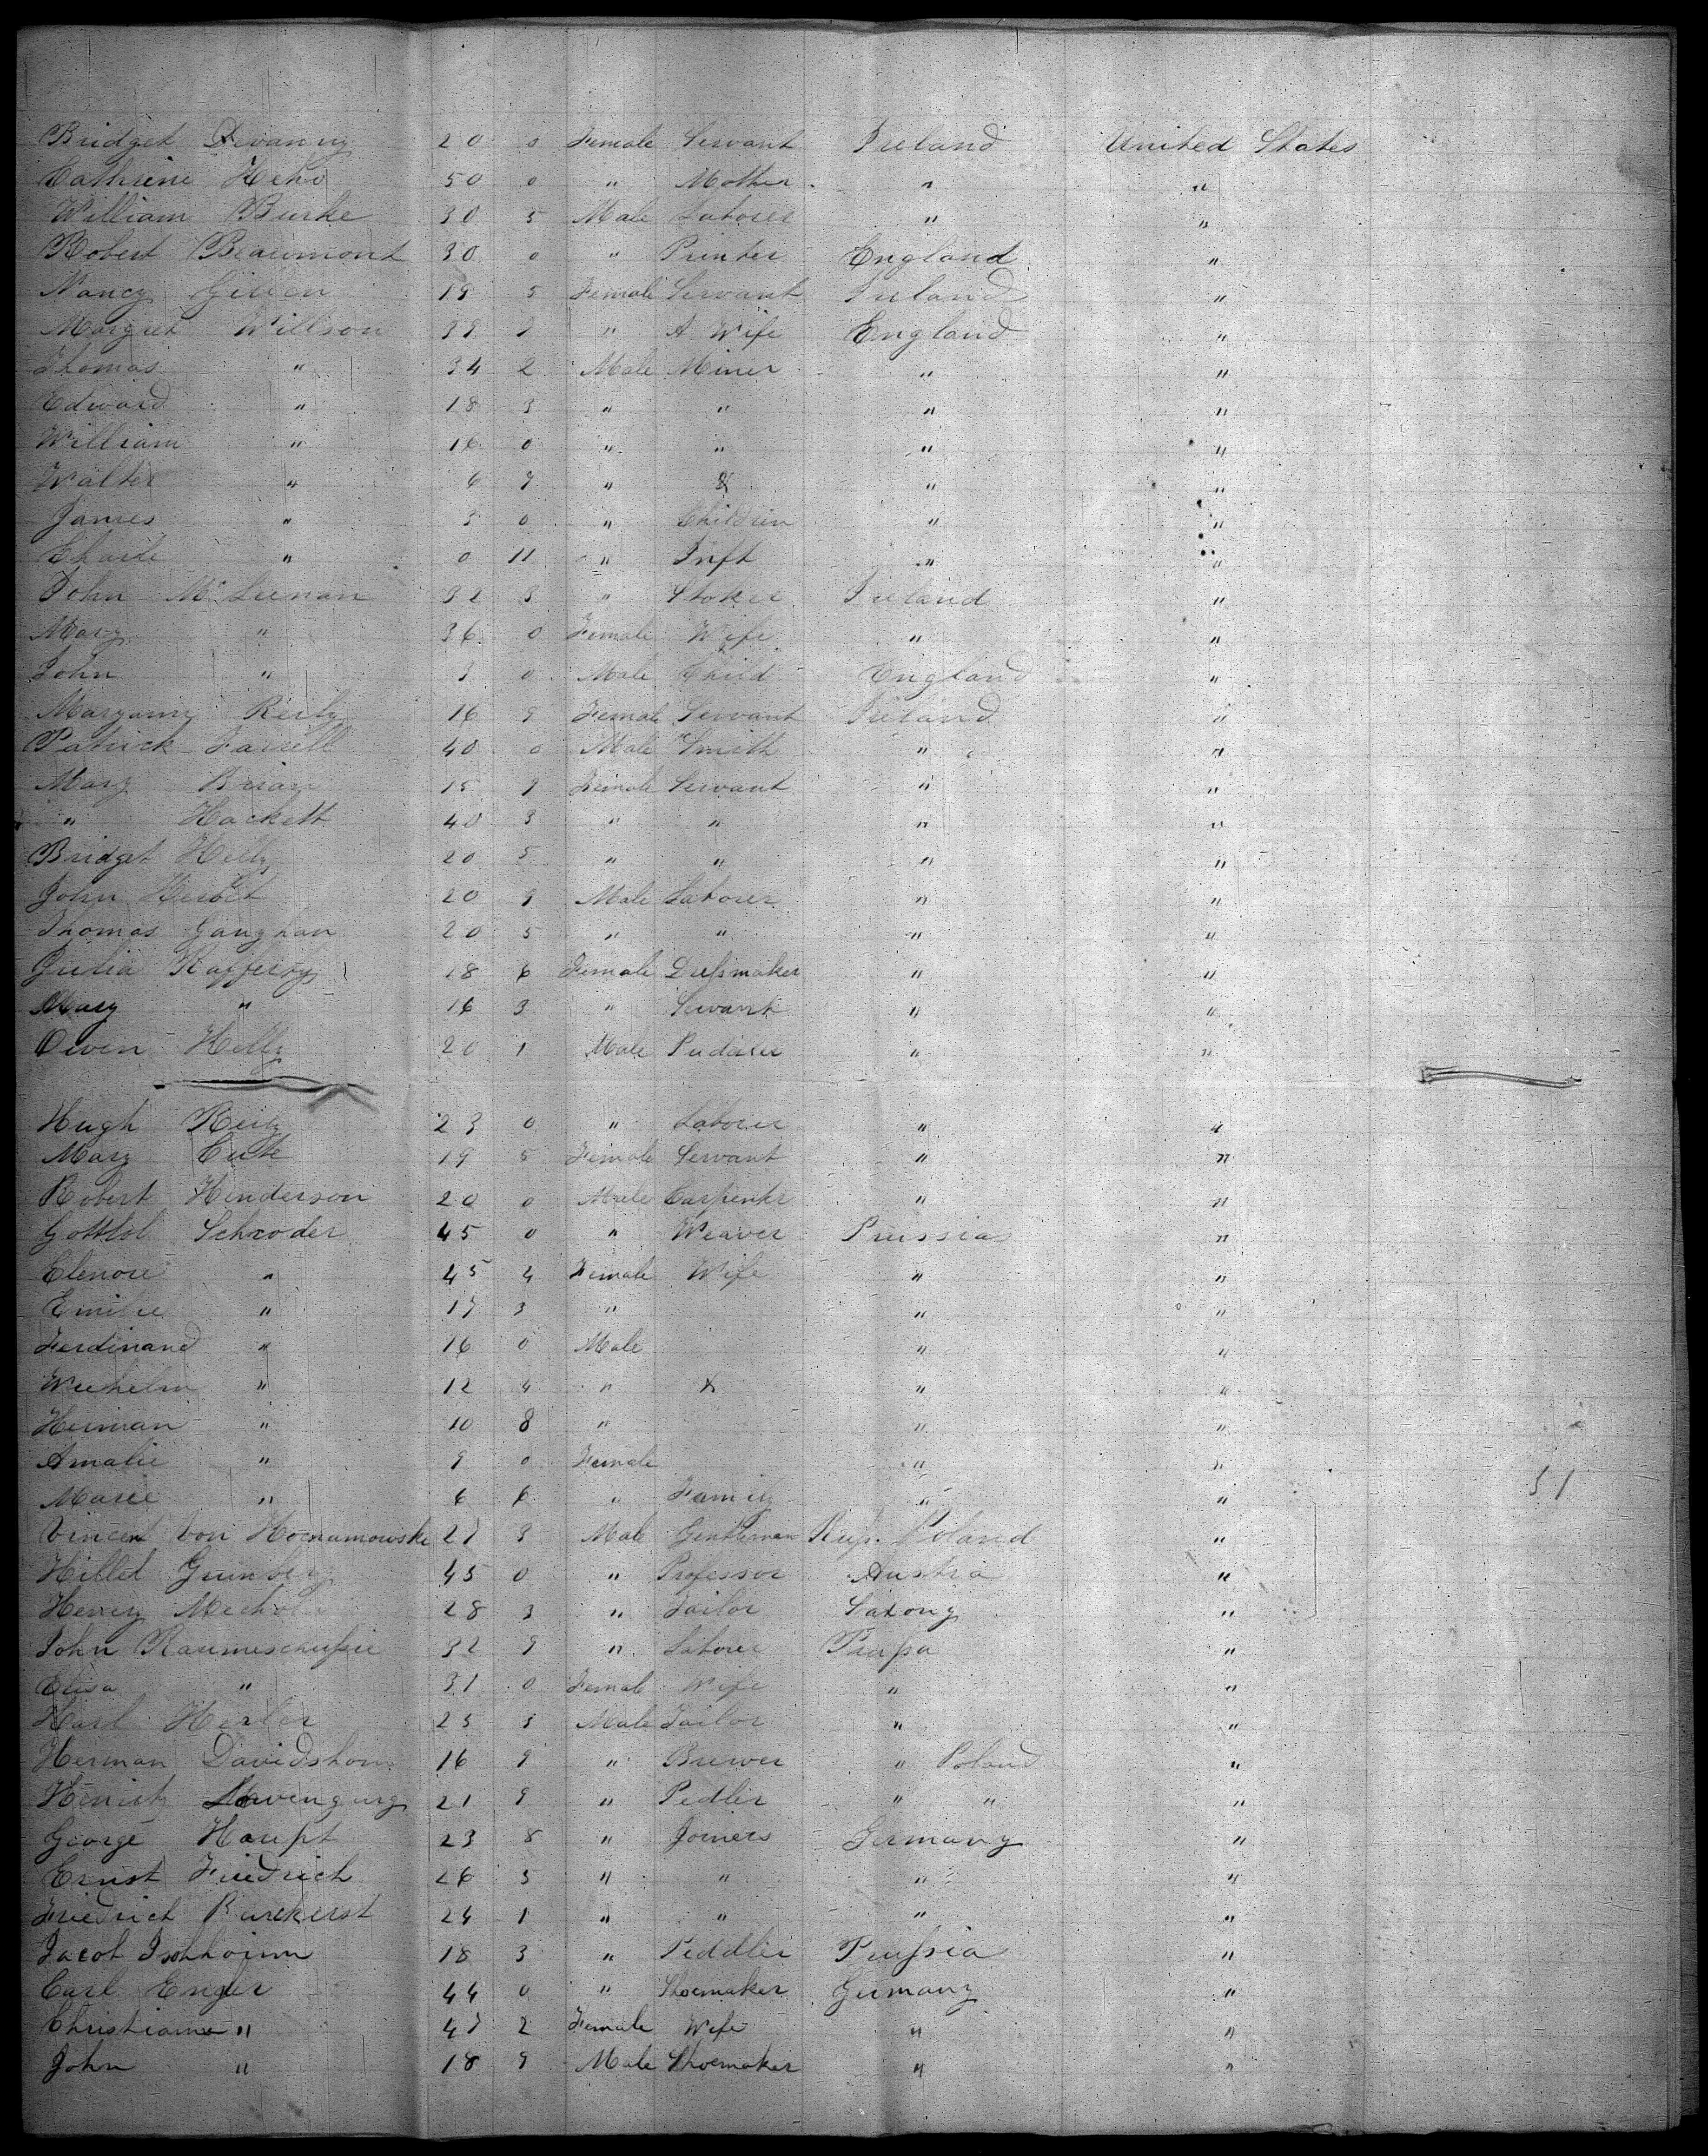 Bridget Devanny 20 0 Female Servant Ireland United States
Cathrine 50 0 " Mother " "
William Burke 30 5 Male Laborer " "
Robert Beaumont 30 0 " Printer England "
Nancy Gillen 19 5 Female Servant Ireland "
Margret Willson 39 9 " A Wife England "
Thomas " 34 2 Male Miner " "
Edward " 18 3 " " " "
William " 16 0 " " " "
Walter " 6 9 " & " "
James " 3 0 " Children " "
" 0 11 " Inft " "
John 32 3 " Stoker Ireland "
Mary " 36 0 Female Wife " "
John " 3 0 Male Child England "
Maryann Reily 16 9 Female Servant Ireland "
Patrick Farrell 40 0 Male Smith " "
Mary Brian 15 9 Female Servant " "
" Hackett 40 3 " " " "
Bridget Kelly 20 5 " " " "
John 20 9 Male Laborer " "
Thomas Gaughan 20 5 " " " "
Julia Kafferty 18 6 Female Dressmaker " "
Mary " 16 3 " Servant " "
Owen Kelly 20 1 Male Pudeler " "
Hugh Reily 23 0 " Laborer " "
Mary 19 5 Female Servant " "
Robert Henderson 20 0 Male Carpenter " "
Gottlob Schroder 45 0 " Weaver Prussia "
Elenore " 45 4 Female Wife " "
Emilie " 19 3 " " "
Ferdinand " 16 0 Male " "
Wilhelm " 12 4 " & " "
Herman " 10 8 " " "
Amalie " 9 0 Female " "
51
Marie " 6 6 " Family " "
Vincent von 21 3 Male Gentleman Rus. Poland "
Hillel Grünberg 45 0 " Professor Austria "
Henry 28 3 " Tailor Saxony "
John 32 9 " Laborer Prussa "
Elisa " 31 0 Female Wife " "
Karl Herler 25 3 Male Tailor " "
Herman Davidshon 16 9 " Brewer " Poland "
21 9 " Pedler " " "
George Haupt 23 8 " Joiners Germany "
Ernst Friedrich 26 5 " " " "
Friedrich Burckerst 24 1 " " " "
Jacob 18 3 " Peddler Prussia "
Carl Engler 44 0 " Shoemaker Germany "
Christiane " 47 2 Female Wife " "
John " 18 9 Male Shoemaker " "